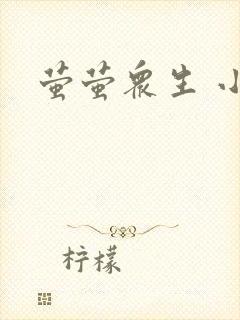 萤萤众生 小
柠檬